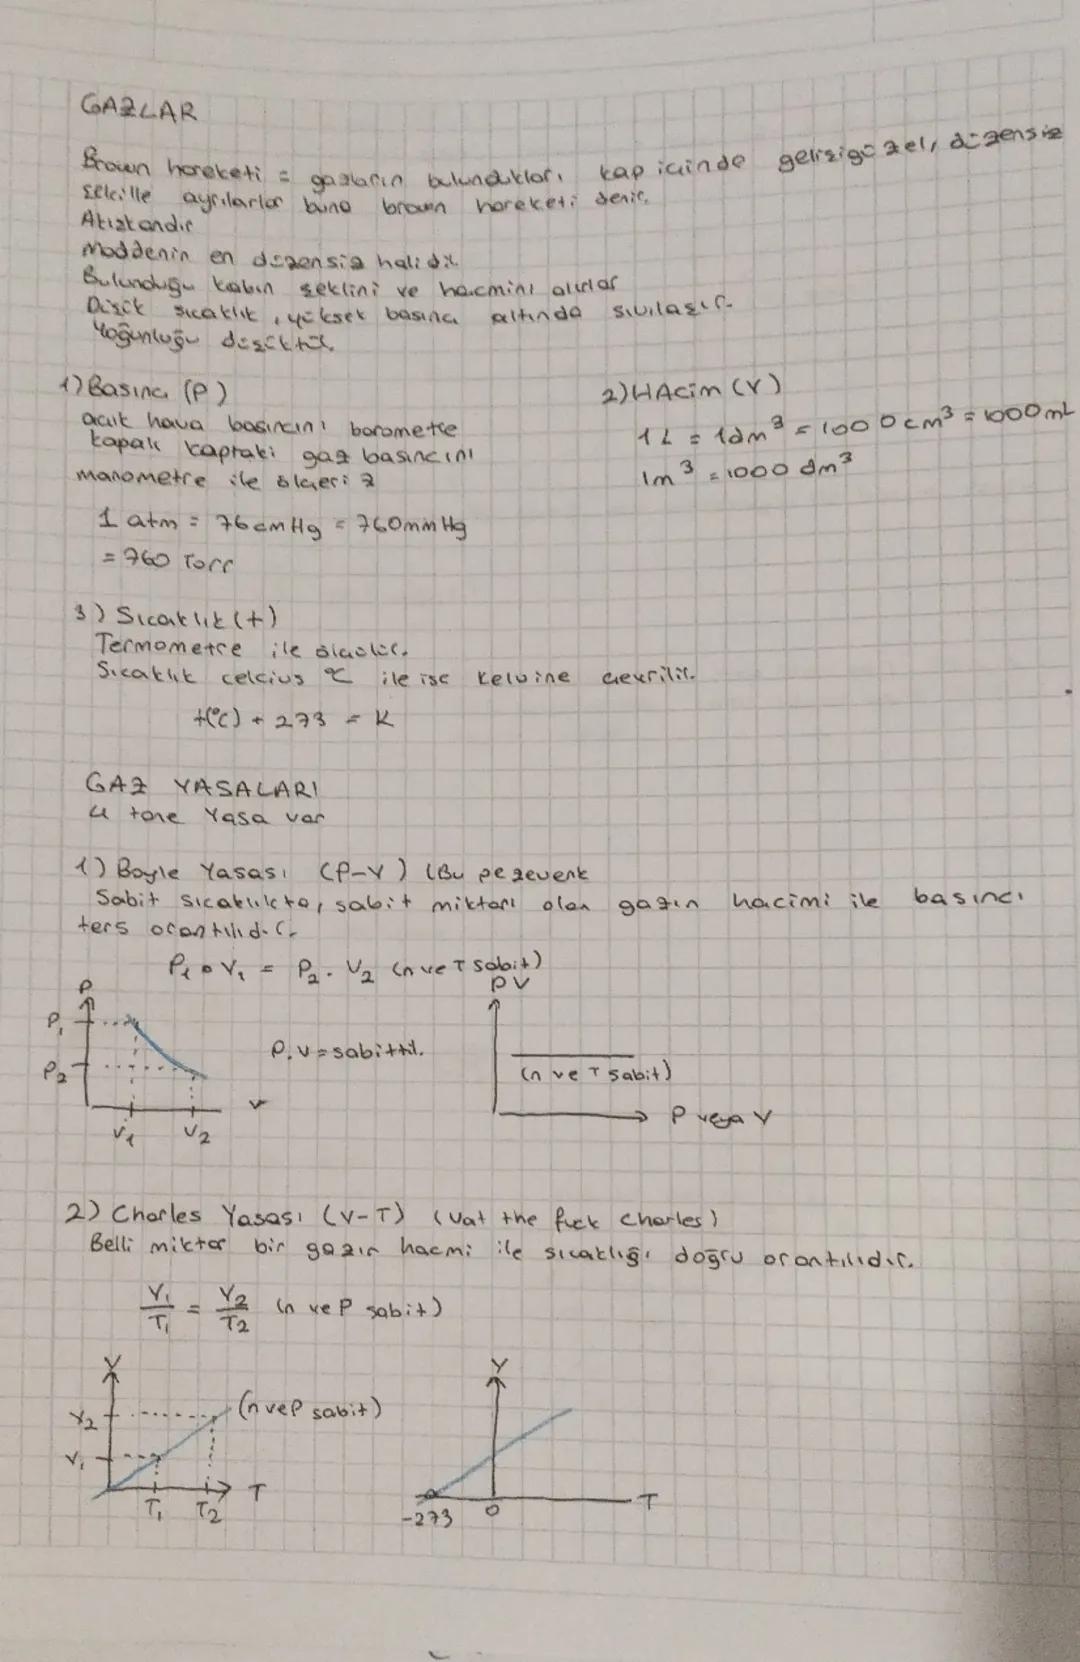 GAZLAR
Brown hareketi = gazların bulundukları kap içinde gelişigüzel, düzensiz
şekille ayrılarlar buna brown hareketi denir.
Akışkandır
Maddenin en düzensiz halidir
Bulunduğu kabın şeklini ve hacmini alırlar
Düşük sıcaklık, yüksek basınç altında sıvılaşır.
Yoğunluğu düşüktür.
1) Basınç (P)
açık hava basıncını barometre
kapalı kaptaki gaz basıncını
manometre ile ölçeriz
1 atm = 76 cmHg = 760mmHg
= 760 Torr
2) HAcim (V)
1 L = 1dm³ = 1000cm³ = 1000mL
1m³ = 1000 dm³
3) Sıcaklık (t)
Termometre ile ölçülür.
Sıcaklık celcius °C ile ise kelvine çevrilir.
t(°C) + 273 = K
GAZ YASALARI
4 tane Yasa var
1) Boyle Yasası (P-V) (Bu pezevenk
Sabit sıcaklıkta, sabit miktarı olan gazın hacimi ile basıncı
ters orantılıdır.
P₁ • V₁ = P₂ . V₂ (n ve T sabit)
P
P₁
P₂
V₁ V₂
V
P.V = sabittir.
PV
(n ve T sabit)
P veya V
2) Charles Yasası (V-T) (vat the fuck Charles)
Belli miktar bir gazın hacmi ile sıcaklığı doğru orantılıdır.
V₁/T₁ = V₂/T₂ (n ve P sabit)
V
V₂
V₁
T₁ T₂
T
(n ve P sabit)
V
-273 0
T